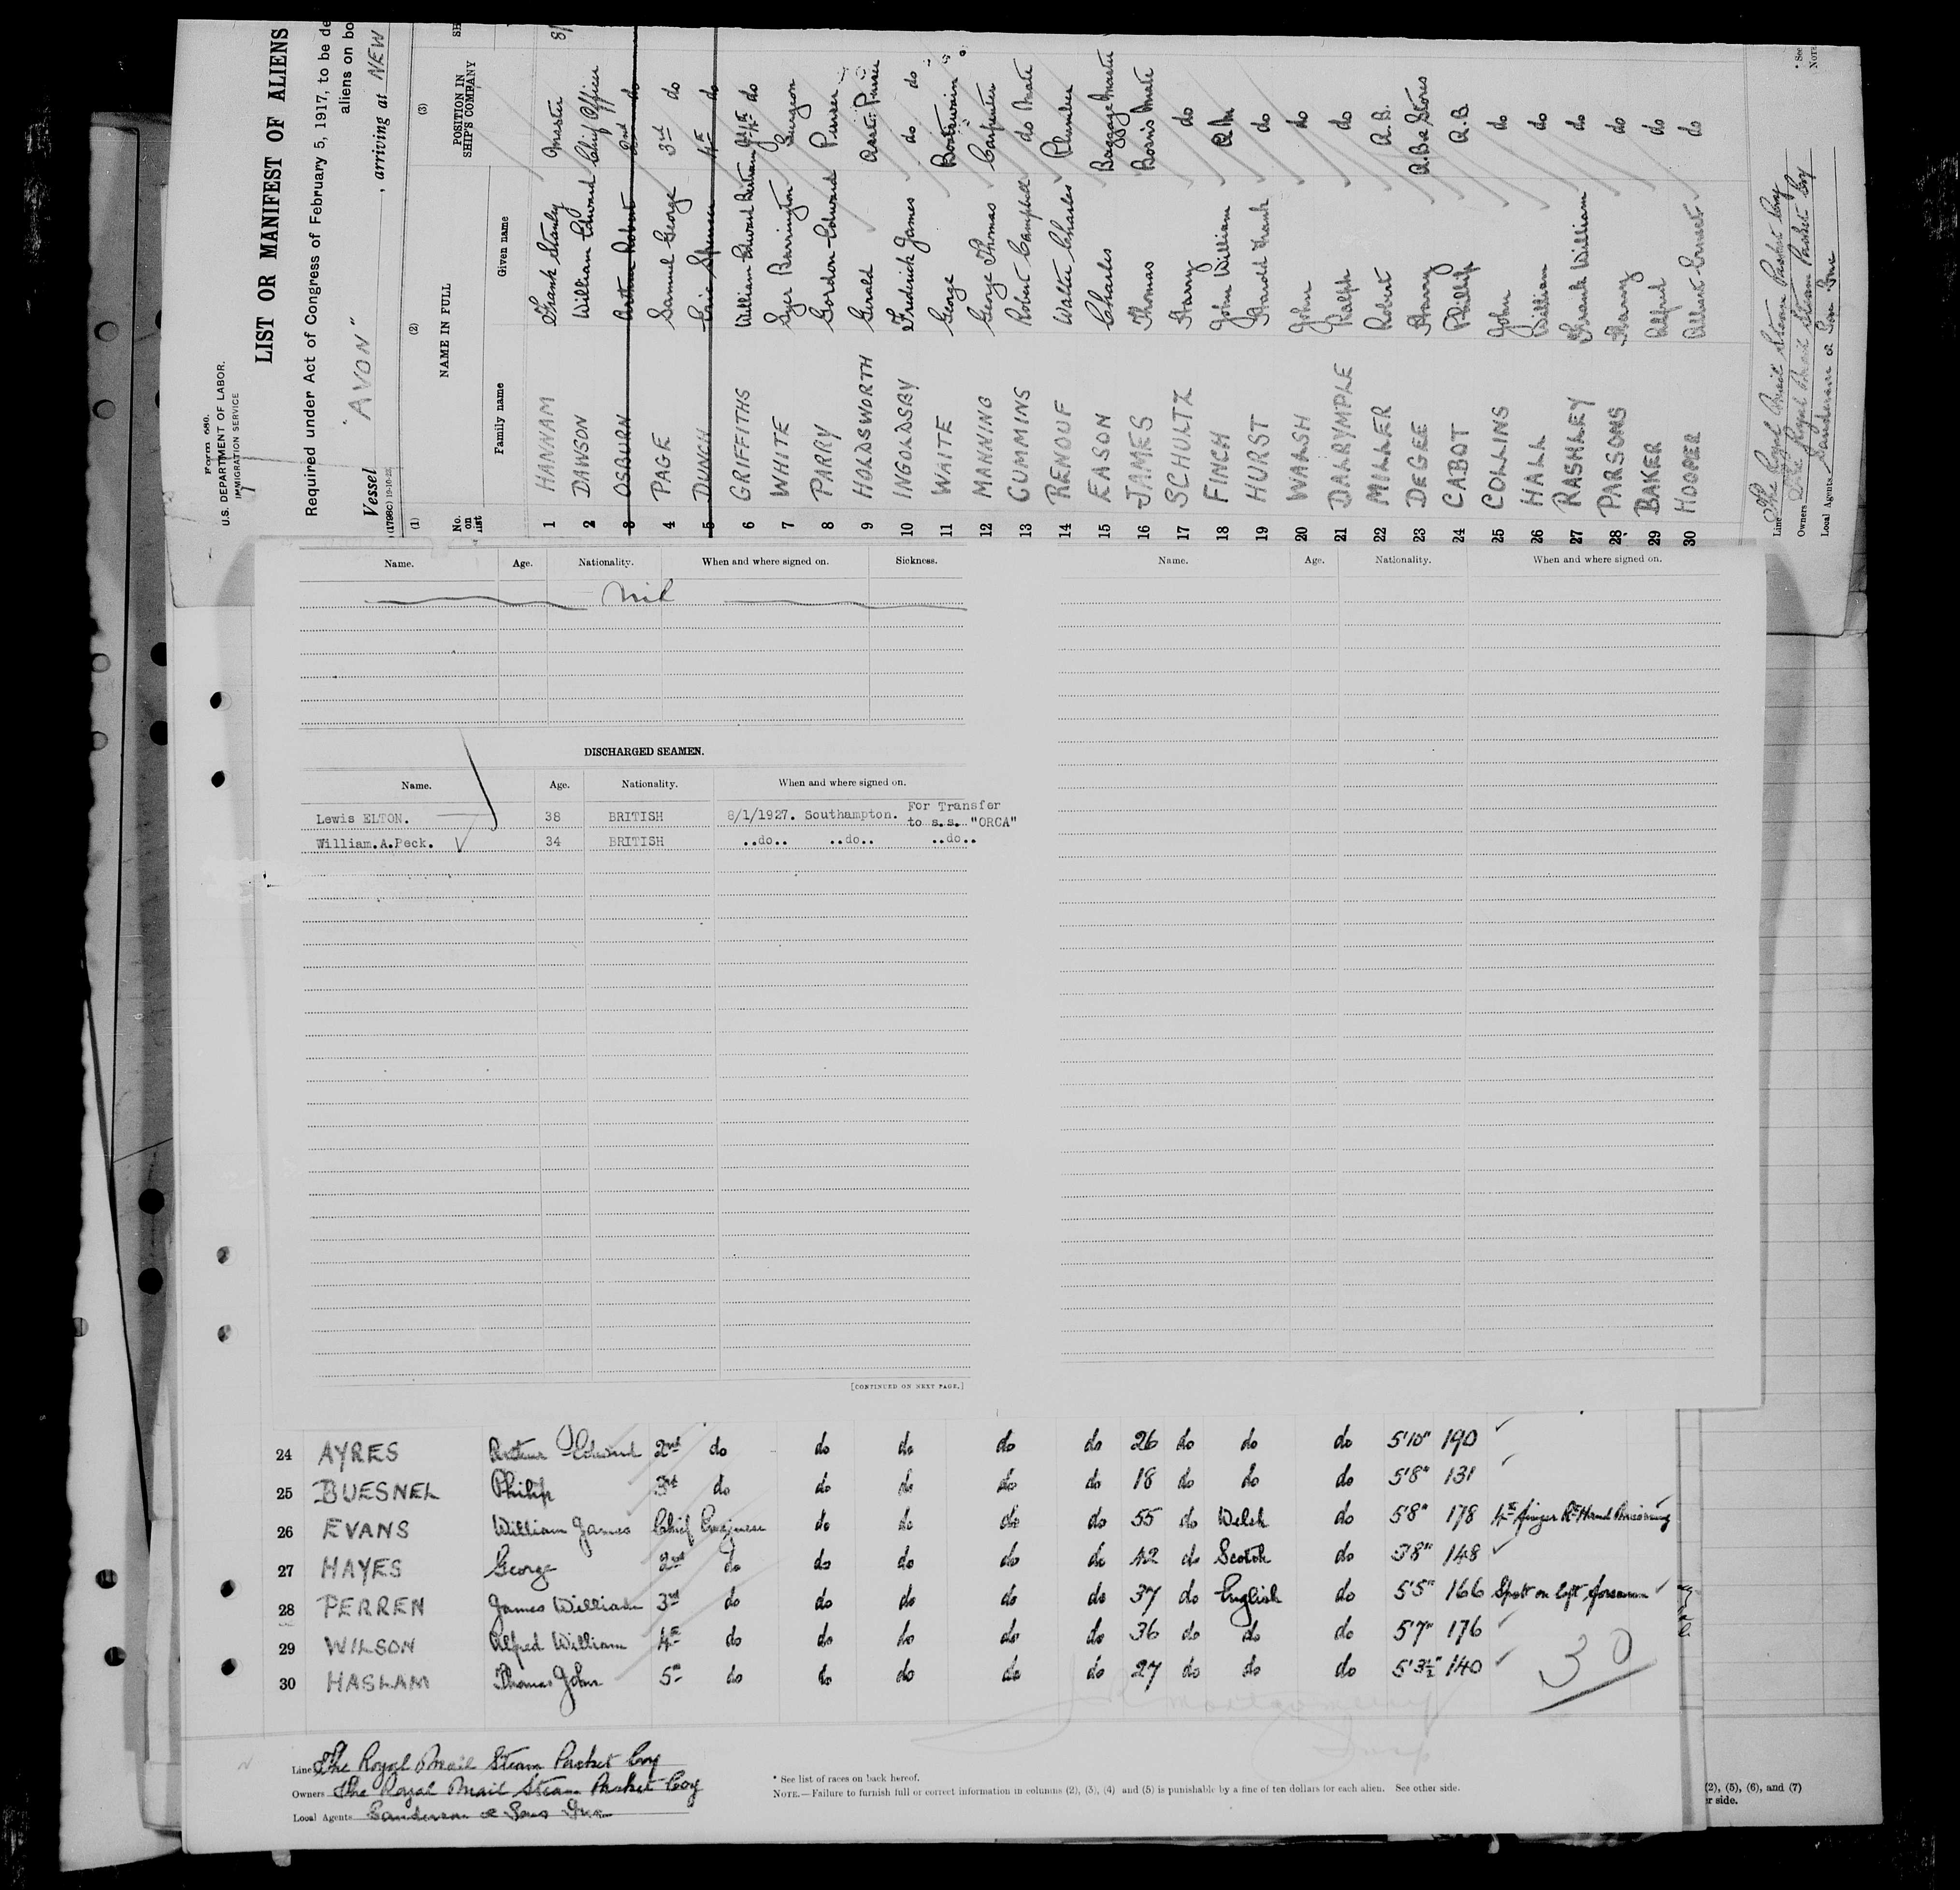 Form 680.
U.S. DEPARTMENT OF LABOR.
IMMIGRATION SERVICE
LIST OR MANIFEST OF ALIENS
Required under Act of Congress of February 5, 1917, to be de
aliens on bo
Vessel "AVON" , arriving at NEW
(1) (2) (3)
No. on list NAME IN FULL POSITION IN SHIP'S COMPANY SH
Family name Given name
1 HANNAM Frank Stanley Master 8/
2 DAWSON William Edward Chief Officer
3 OSBURN Arthur Robert 2nd do
4 PAGE Samuel George 3rd do
5 DUNCH Eric Spencer 4th do
6 GRIFFITHS William Edward Bertram do
7 WHITE Barrington Surgeon
8 PARRY Gordon Edward Purser
9 HOLDSWORTH Gerald Asst. Purser
10 INGOLDSBY Frederick James do do
11 WAITE George Boatswain
12 MANNING George Thomas Carpenter
13 CUMMINS Robert Campbell do Mate
14 RENOUF Walter Charles Plumber
15 EASON Charles Baggage Master
16 JAMES Thomas Bosn's Mate
17 SCHULTZ Harry do
18 FINCH John William Q.M
19 HURST Harold Frank do
20 WALSH John do
21 DALRYMPLE Ralph do
22 MILLER Robert A.B.
23 DEGEE Harry A.B & Stores
24 CABOT Phillip A.B
25 COLLINS John do
26 HALL William do
27 RASHLEY Frank William do
28 PARSONS Harry do
29 BAKER Alfred do
30 HOOPER Albert Ernest do
Line The Royal Mail Steam Packet Coy
Owners The Royal Mail Steam Packet Coy
Local Agents Sanderson & Son Inc
* See
NOTE
Name. Age. Nationality. When and where signed on. Sickness.
nil
DISCHARGED SEAMEN.
Name. Age. Nationality. When and where signed on.
Lewis ELTON. 38 BRITISH 8/1/1927. Southampton. For Transfer to s.s. "ORCA"
William.A.Peck. 34 BRITISH ..do.. ..do.. ..do..
[CONTINUED ON NEXT PAGE.]
Name. Age. Nationality. When and where signed on.
24 AYRES Arthur Edward 2nd do do do do do 26 do do do 5'10" 190
25 BUESNEL Philip 3rd do do do do do 18 do do do 5'8" 131
26 EVANS William James Chief Engineer do do do do 55 do Welsh do 5'8" 178 4th finger Rt Hand Missing
27 HAYES George 2nd do do do do do 42 do Scotch do 5'8" 148
28 PERREN James William 3rd do do do do do 37 do English do 5'5" 166 Spot on left forearm
29 WILSON Alfred William 4th do do do do do 36 do do do 5'7" 176
30 HASLAM Thomas John 5th do do do do do 27 do do do 5'3½" 140
30
Line The Royal Mail Steam Packet Coy
Owners The Royal Mail Steam Packet Coy
Local Agents Sanderson & Sons Inc
* See list of races on back hereof.
NOTE.—Failure to furnish full or correct information in columns (2), (3), (4) and (5) is punishable by a fine of ten dollars for each alien. See other side.
(2), (5), (6), and (7)
r side.